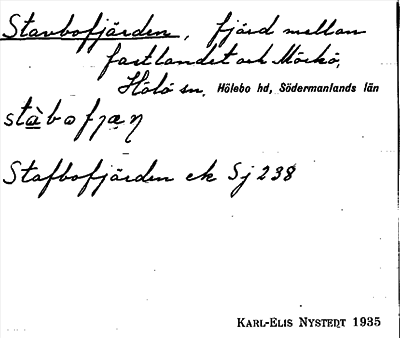 Stavbofjärden, fjärd mellan
fastlandet och Mörkö,
Hölö sn. Hölebo hd, Södermanlands län
stàbofjæṇ
Stafbofjärden ek Sj 238
KARL-ELIS NYSTEDT 1935